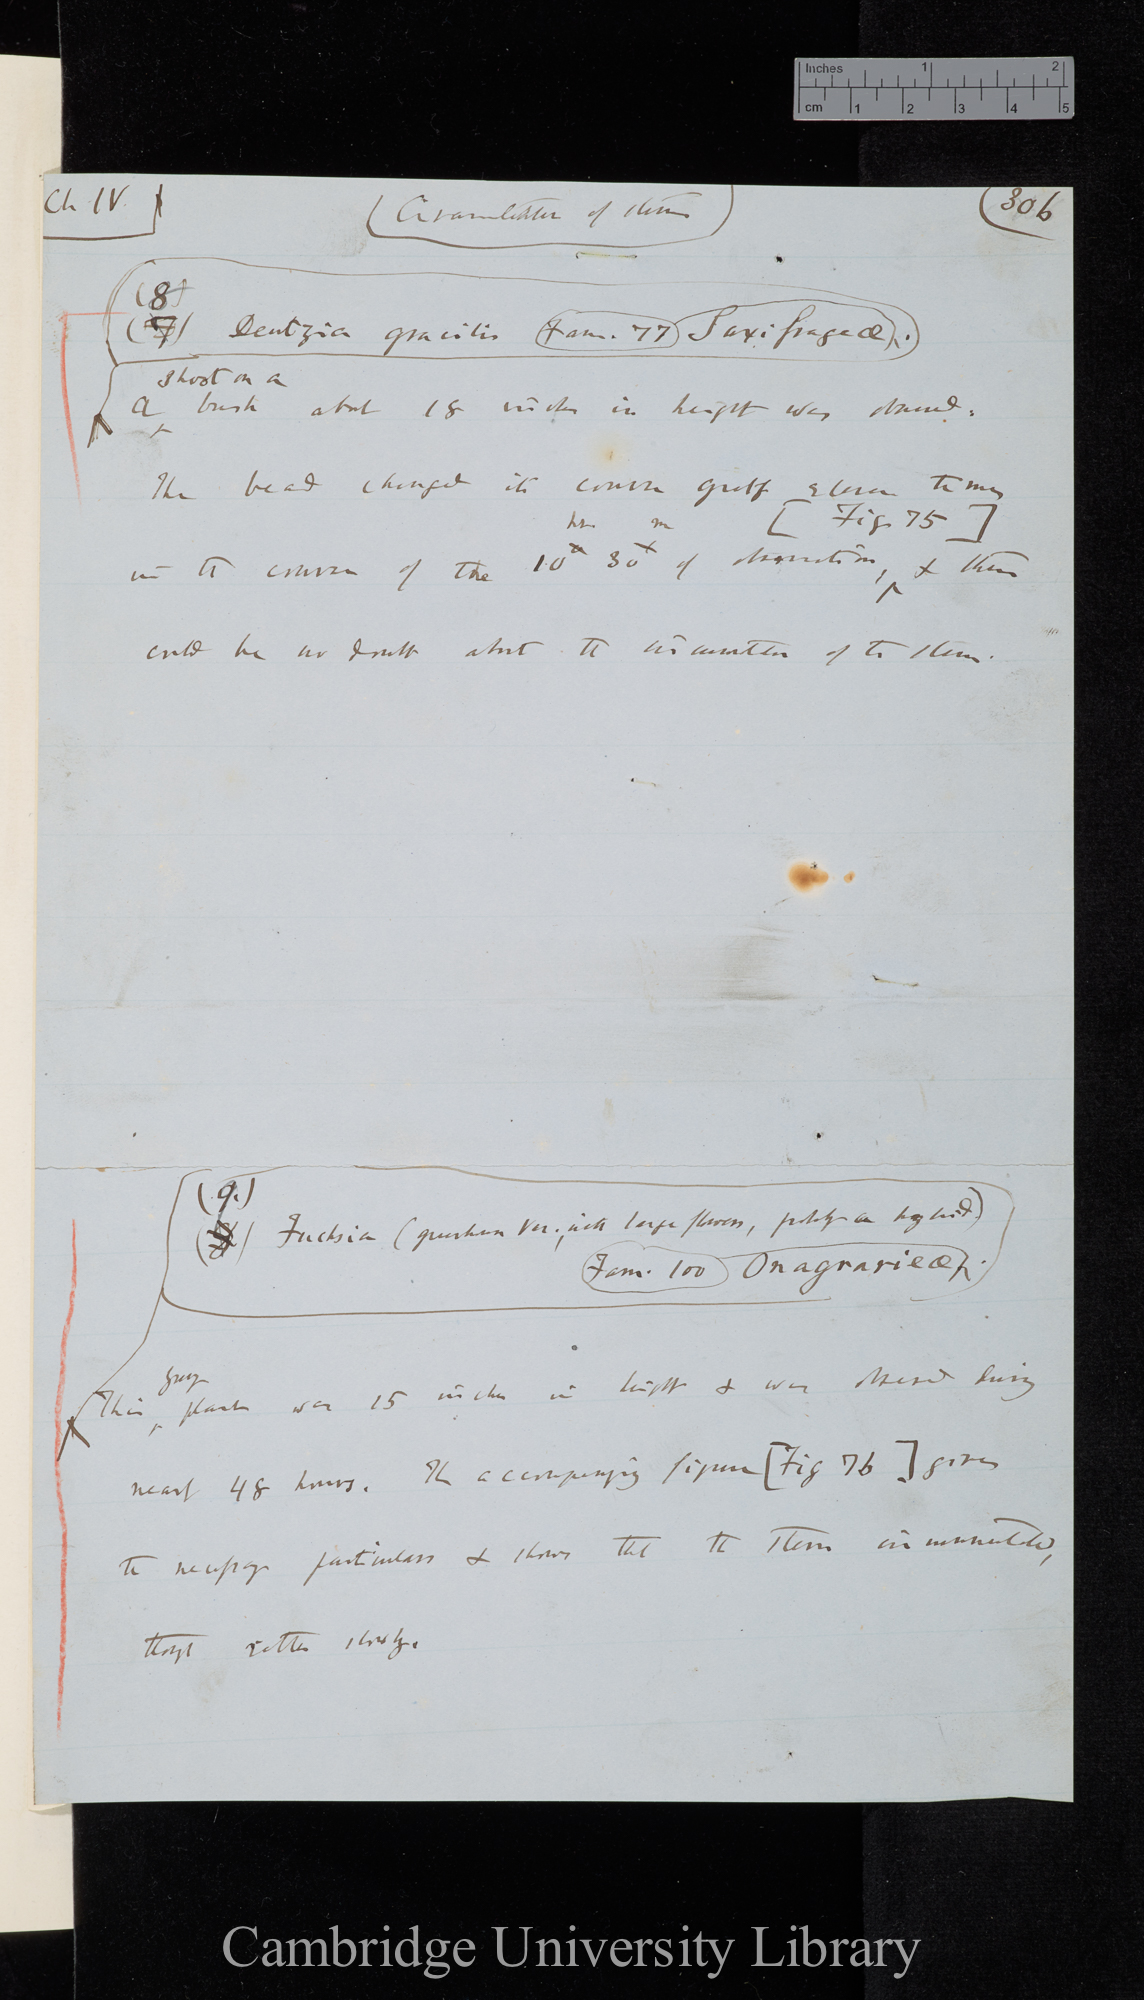 Inches 1 2
cm 1 2 3 4 5
Ch IV
Circumnutation of stems
306
(8)
(7) Deutzia gracilis (Fam. 77) Saxifrageæ).
shoot on a
A bush about 18 inches in height was observed.
The bead changed its course greatly eleven times
hrs m [Fig. 75]
in the course of the 10 30 of observation, & there
could be no doubt about the circumnutation of the stem.
(9.)
Fuchsia (greenhouse var., with large flowers, probably a hybrid)
Fam. 100 Onagrarieæ).
young
This plant was 15 inches in height & was observed during
nearly 48 hours. The accompanying figure [Fig 76] gives
the necessary particulars & shows that the stem circumnutated,
though rather slowly.
Cambridge University Library